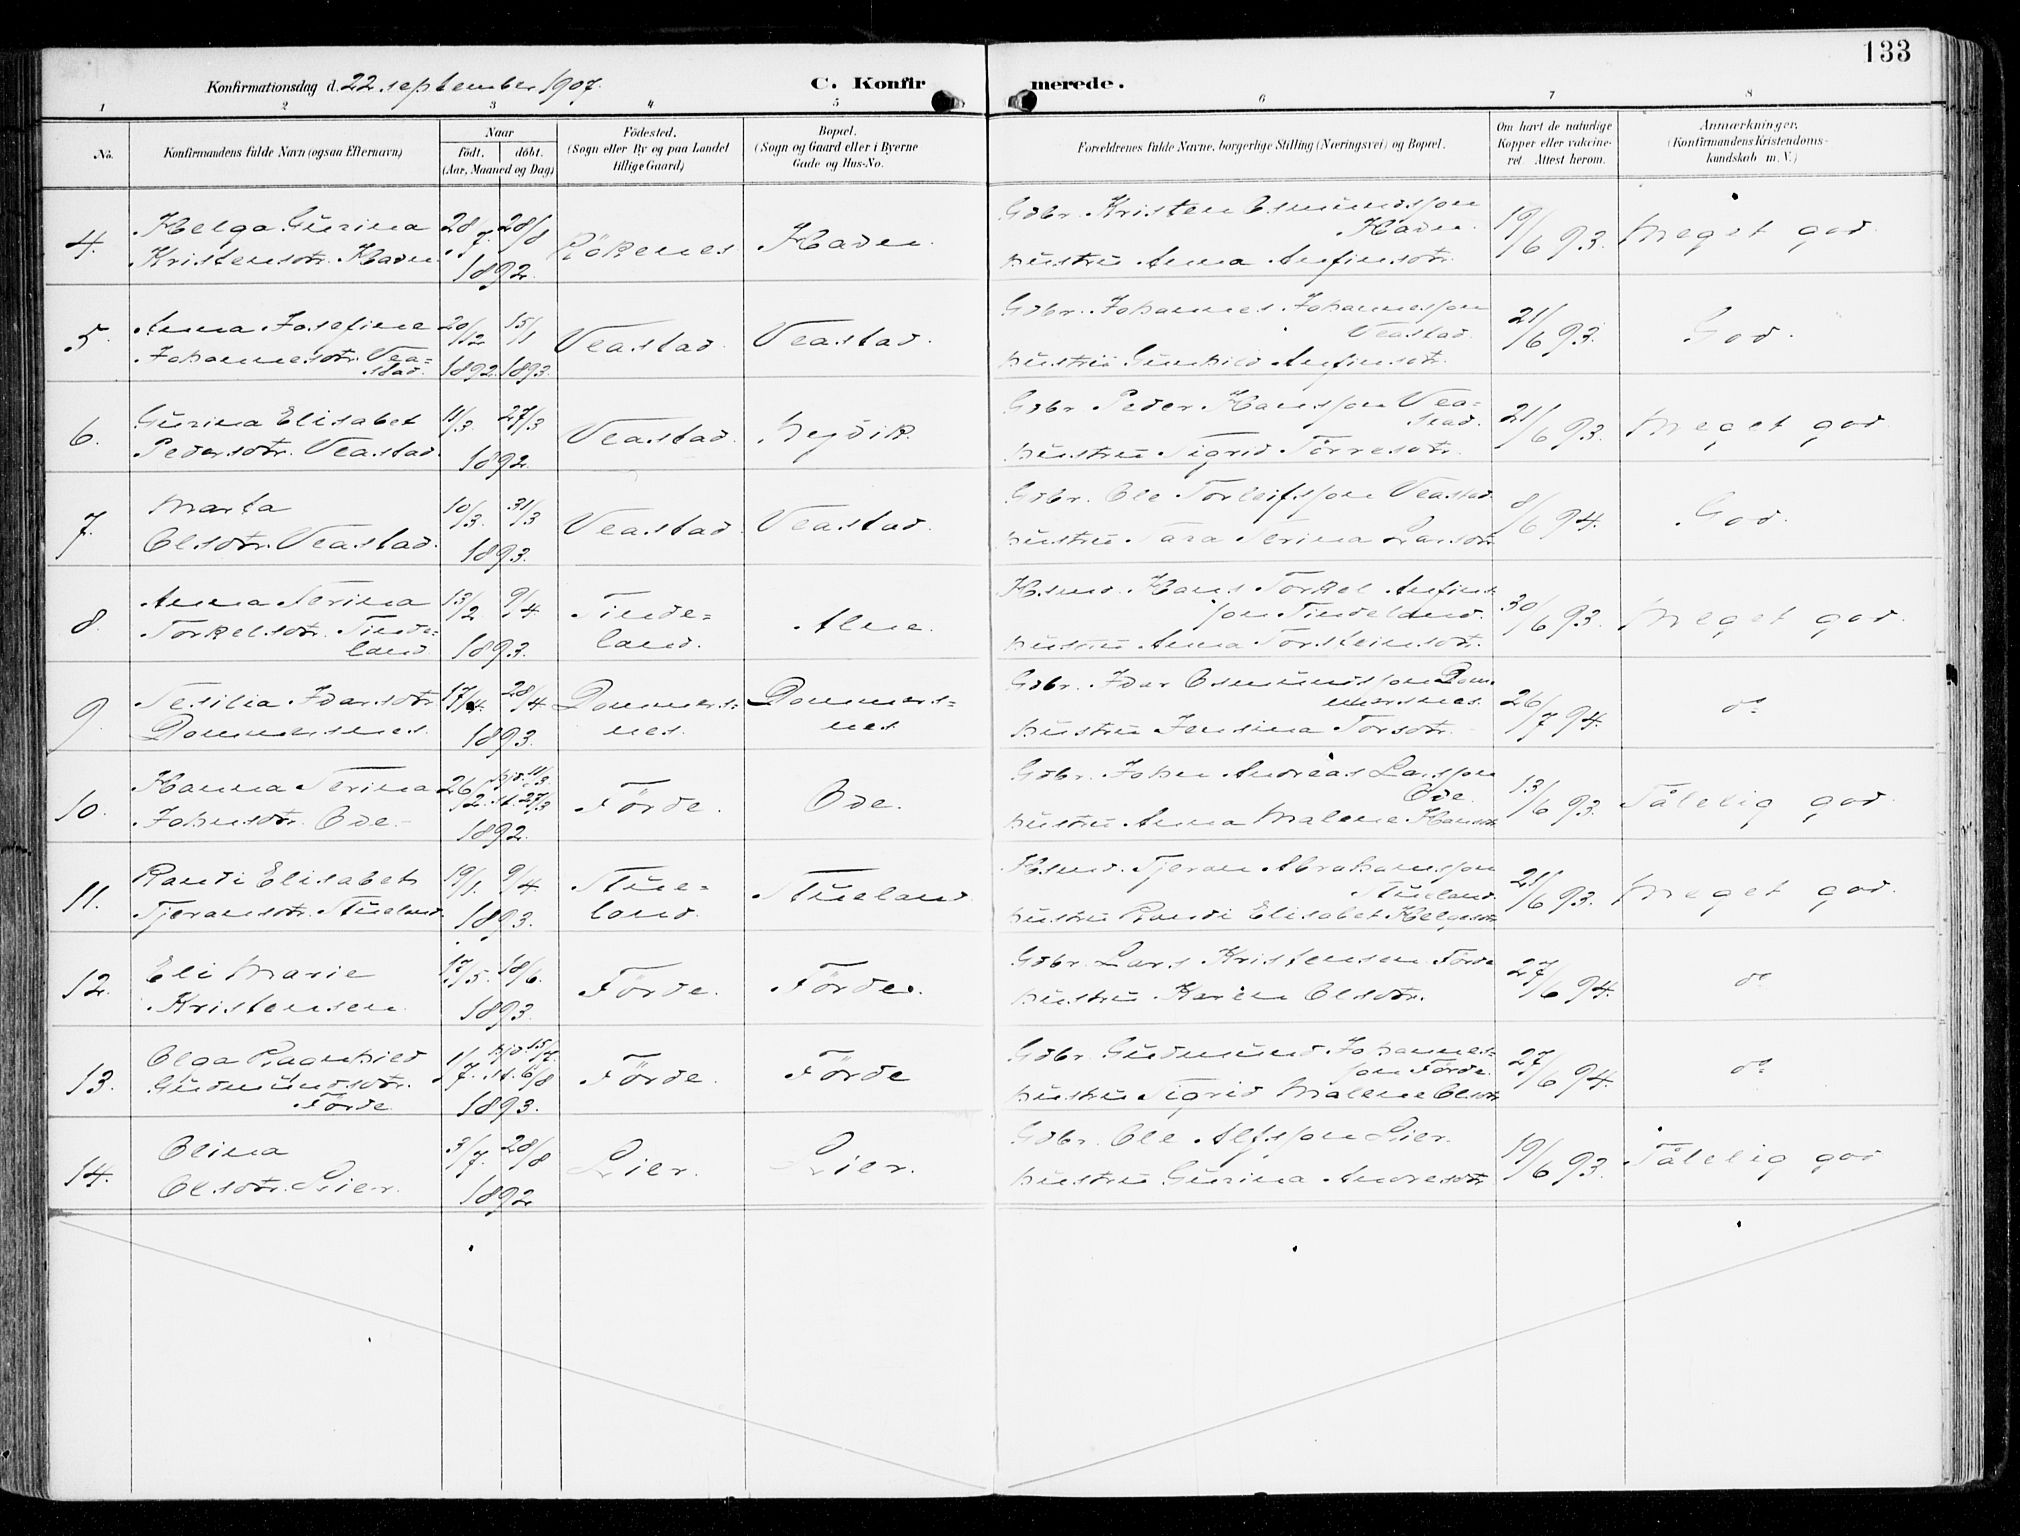 133
Konfirmationsdag d. 22. september 1907.
C. Konfirmerede.
1 2 3 4 5 6 7 8
No.
Konfirmandens fulde Navn (ogsaa Efternavn)
Naar
født, døbt,
(Aar, Maaned og Dag)
Fødested.
(Sogn eller By og paa Landet
tillige Gaard)
Bopæl.
(Sogn og Gaard eller i Byerne
Gade og Hus-No.
Forældrenes fulde Navne, borgerlige Stilling (Næringsvei) og Bopæl.
Om havt de naturlige
Kopper eller vakcine-
ret. Attest herom.
Anmærkninger.
(Konfirmandens Kristendoms-
kundskab m. V.)
4. Helga Gurina
Kristensdtr. Haven
28/7. 28/8
1892.
Rökenes.
Haven.
Gdbr. Kristen Osmundsson
Haven.
hustru Anna Anfinsdtr.
19/6 93.
Meget god.
5. Anna Josefine
Johannesdtr. Vea-
stad.
20/12 15/1
1892. 1893.
Veastad.
Veastad.
Gdbr. Johannes Johannesson
Veastad.
hustru Gunhild Anfinsdtr.
21/6 93.
God.
6. Gurina Elisabet
Pedersdtr. Veastad.
11/3. 27/3
1892.
Veastad.
Gdbr. Peder Hansson Vea-
stad.
hustru Sigrid Törresdtr.
21/6 93.
Meget god
7. Marta
Olsdtr. Veastad.
10/3. 31/3
1893.
Veastad.
Veastad.
Gdbr. Ole Torleifsson Veastad
hustru Sara Serina Larsdtr.
8/6 94.
God.
8. Anna Serina
Torkelsdtr. Tinde-
land
13/2 9/4
1893.
Tinde-
land.
Alne.
Hsmd. Hans Torkel Anfins-
son Tindeland.
hustru Anna Torsteinsdtr.
30/6 93.
Meget god.
9. Sesilia Idarsdtr
Dommersnes.
17/4. 28/4
1893.
Dommers-
nes.
Dommers-
nes
Gdbr. Idar Osmundsson Dom-
mersnes.
hustru Jensina Torsdtr.
26/7 94.
do
10. Hanna Serina
Johnsdtr. Ode.
26/2. hjd. 11/3 st. 27/3
1892.
Förde.
Ode.
Gdbr. John Andreas Larsson
Ode.
hustru Anna Malene Hansdtr
13/6 93.
Tålelig god.
11. Randi Elisabet
Tjeransdtr. Stueland
19/1. 9/4
1893.
Stue-
land.
Stueland.
Hsmd. Tjeran Abrahamsson
Stueland.
hustru Randi Elisabet Helgesdtr
21/6 93.
Meget god.
12. Eli Marie
Kristensen
17/5. 18/6.
1893.
Förde.
Förde.
Gdbr. Lars Kristensen Förde
hustru Karen Olsdtr.
27/6 94.
do
13. Olga Ragnhild
Gudmundsdtr.
Förde
1/7. hjd. 15/7. st. 6/8
1893.
Förde.
Förde
Gdbr. Gudmund Johannes-
son Förde.
hustru Sigrid Malene Olsdtr
27/6 94.
do
14. Olina
Olsdtr. Lier.
3/7. 28/8
1892
Lier.
Lier.
Gdbr. Ole Alfsson Lier.
hustru Gurina Andresdtr
19/6 93.
Tålelig god